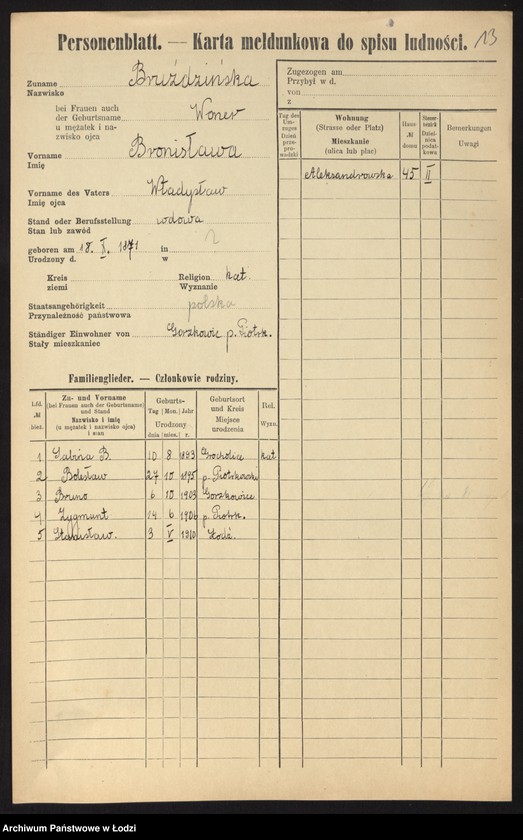 Personenblatt. — Karta meldunkowa do spisu ludności.
13
Zuname
Nazwisko
Bruździńska
bei Frauen auch
der Geburtsname
u mężatek i na-
zwisko ojca
Woner
Vorname
Imię
Bronisława
Vorname des Vaters
Imię ojca
Władysław
Stand oder Berufsstellung
Stan lub zawód
wdowa
geboren am 18. X. 1871 in
Urodzony d. w
Kreis
ziemi
Religion kat.
Wyznanie
Staatsangehörigkeit polska
Przynależność państwowa
Ständiger Einwohner von Gorzkowic p. Piotrk.
Stały mieszkaniec
Zugezogen am
Przybył w d.
von
z
Tag des
Um-
zuges
Dzień
prze-
prowadzki
Wohnung
(Strasse oder Platz)
Mieszkanie
(ulica lub plac)
Haus-
№
domu
Steuer-
bezirk
Dziel-
nica
podat-
kowa
Bemerkungen
Uwagi
Aleksandrowska 45 II
Familienglieder. — Członkowie rodziny.
Lfd.
№
bież.
Zu- und Vorname
(bei Frauen auch der Geburtsname)
und Stand
Nazwisko i imię
(u mężatek i nazwisko ojca)
i stan
Geburts-
Tag Mon. Jahr
Urodzony
dnia mies. r.
Geburtsort
und Kreis
Miejsce
urodzenia
Rel.
Wyzn.
1 Sabina B. 10 8 1893 Grocholice kat
2 Bolesław 27 10 1895 p. Piotrkowski
3 Bruno 6 10 1903 Gorzkowice
4 Zygmunt 14 6 1906 p. Piotrk.
5 Stanisław. 3 V 1910 Łódź.
Archiwum Państwowe w Łodzi